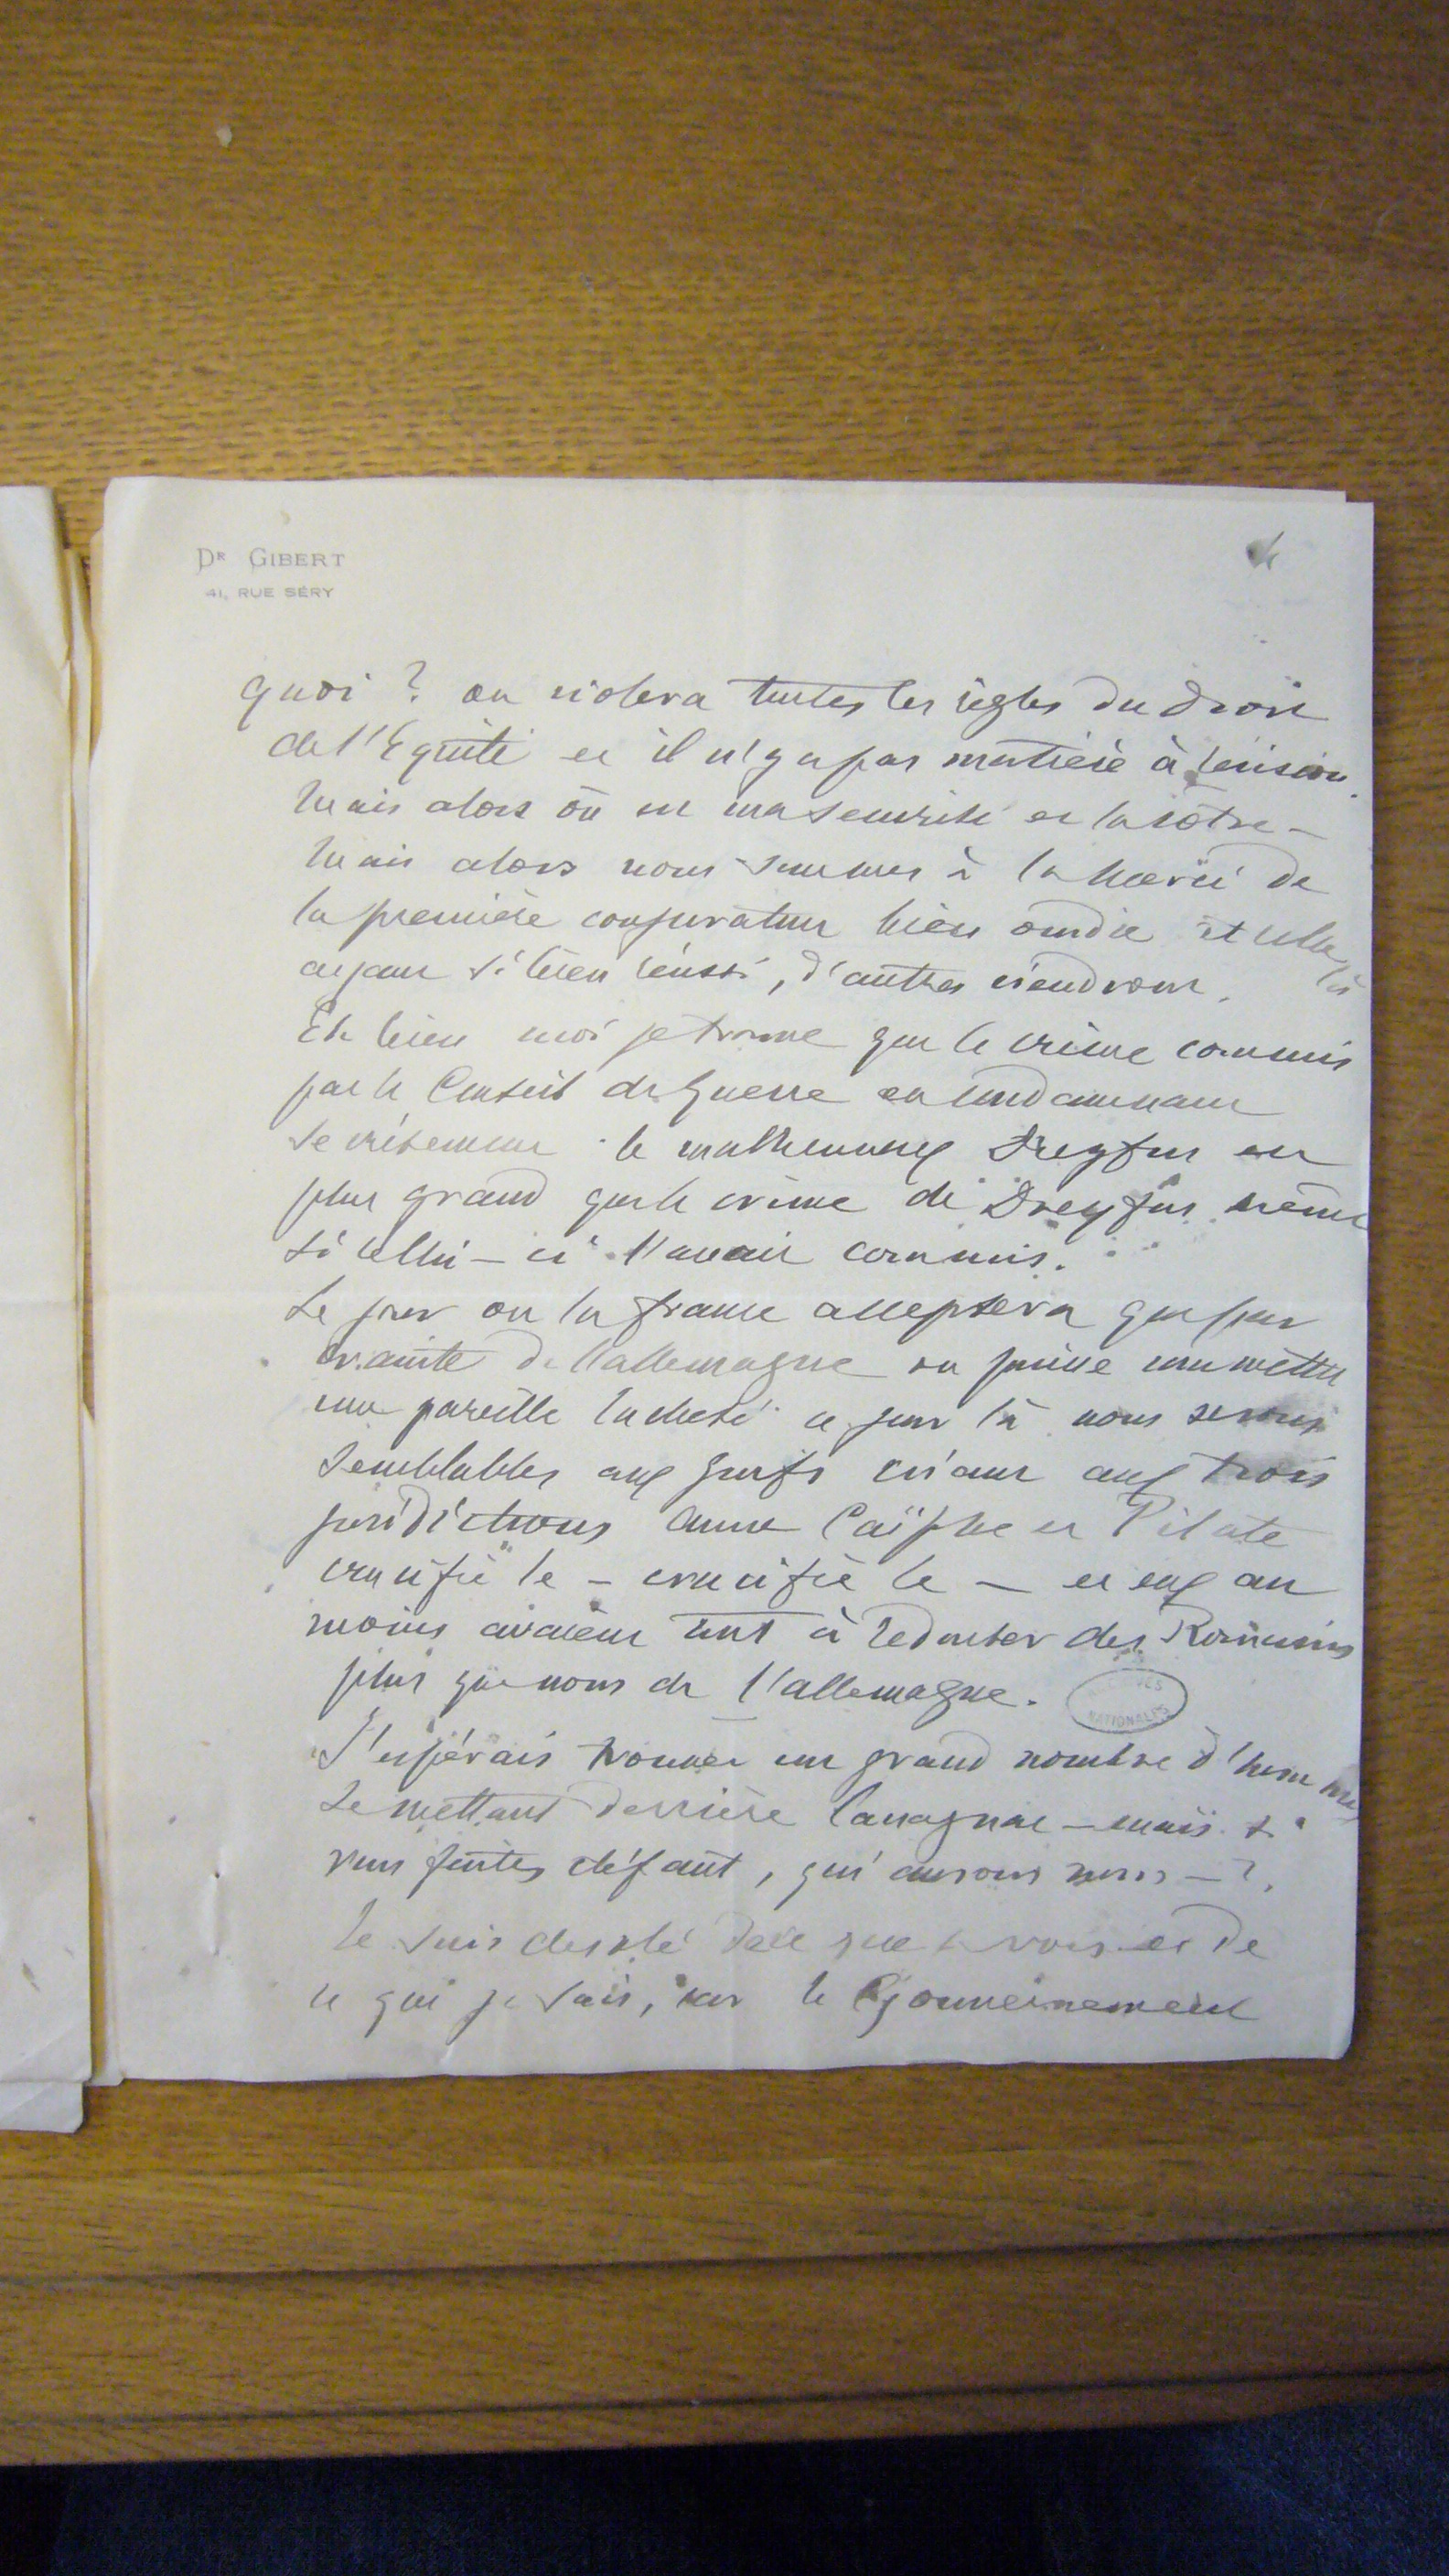 Dr GIBERT
41, RUE SÉRY
quoi ? on violera toutes les règles du droit
de l'Equité et il n'y a pas matière à révision.
Mais alors où est ma sécurité et la vôtre –
Mais alors nous sommes à la merci de
la première conjuration bien ourdie et celle là
ayant si bien réussi, d'autres viendront.
Eh bien moi je trouve que le crime commis
par le Conseil de guerre en condamnant
secrètement le malheureux Dreyfus est
plus grand que le crime de Dreyfus même
si celui-ci l'avait commis.
Le jour où la france acceptera que par
crainte de l'allemagne on puisse commettre
une pareille lacheté ce jour là nous serons
semblables aux juifs criant aux trois
juridictions Anne Caïphe et Pilate
crucifie le – crucifie le – et eux au
moins avaient tout à redouter des Romains
plus que nous de l'allemagne.
NATIONALES
J'espérais trouver un grand nombre d'hommes
se mettant derrière Cavagnac – mais si
vous faites défaut, qui aurons nous – ?
Je suis désolé de ce que je vois et de
ce que je sais, car le Gouvernement